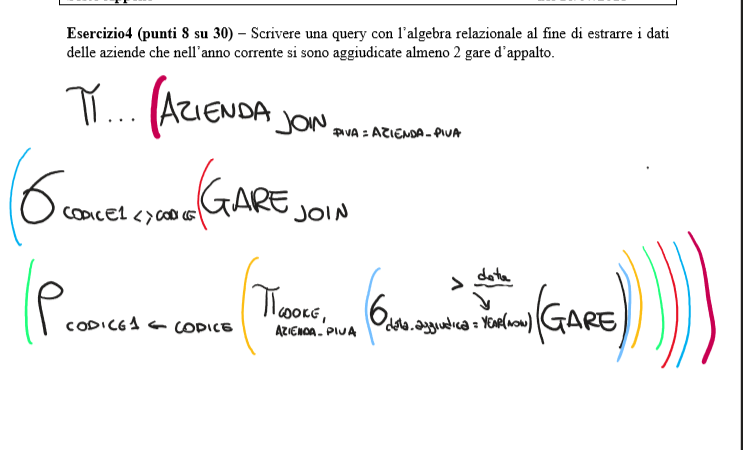 Esercizio4 (punti 8 su 30) – Scrivere una query con l'algebra relazionale al fine di estrarre i dati
delle aziende che nell'anno corrente si sono aggiudicate almeno 2 gare d'appalto.
π... (AZIENDA JOIN PIVA = AZIENDA_PIVA
(σ CODICE1 <> CODICE (GARE JOIN
> data
(ρ CODICE1 ← CODICE (π CODICE, AZIENDA_PIVA (σ data.aggiudica = YEAR(NOW) (GARE)))))))